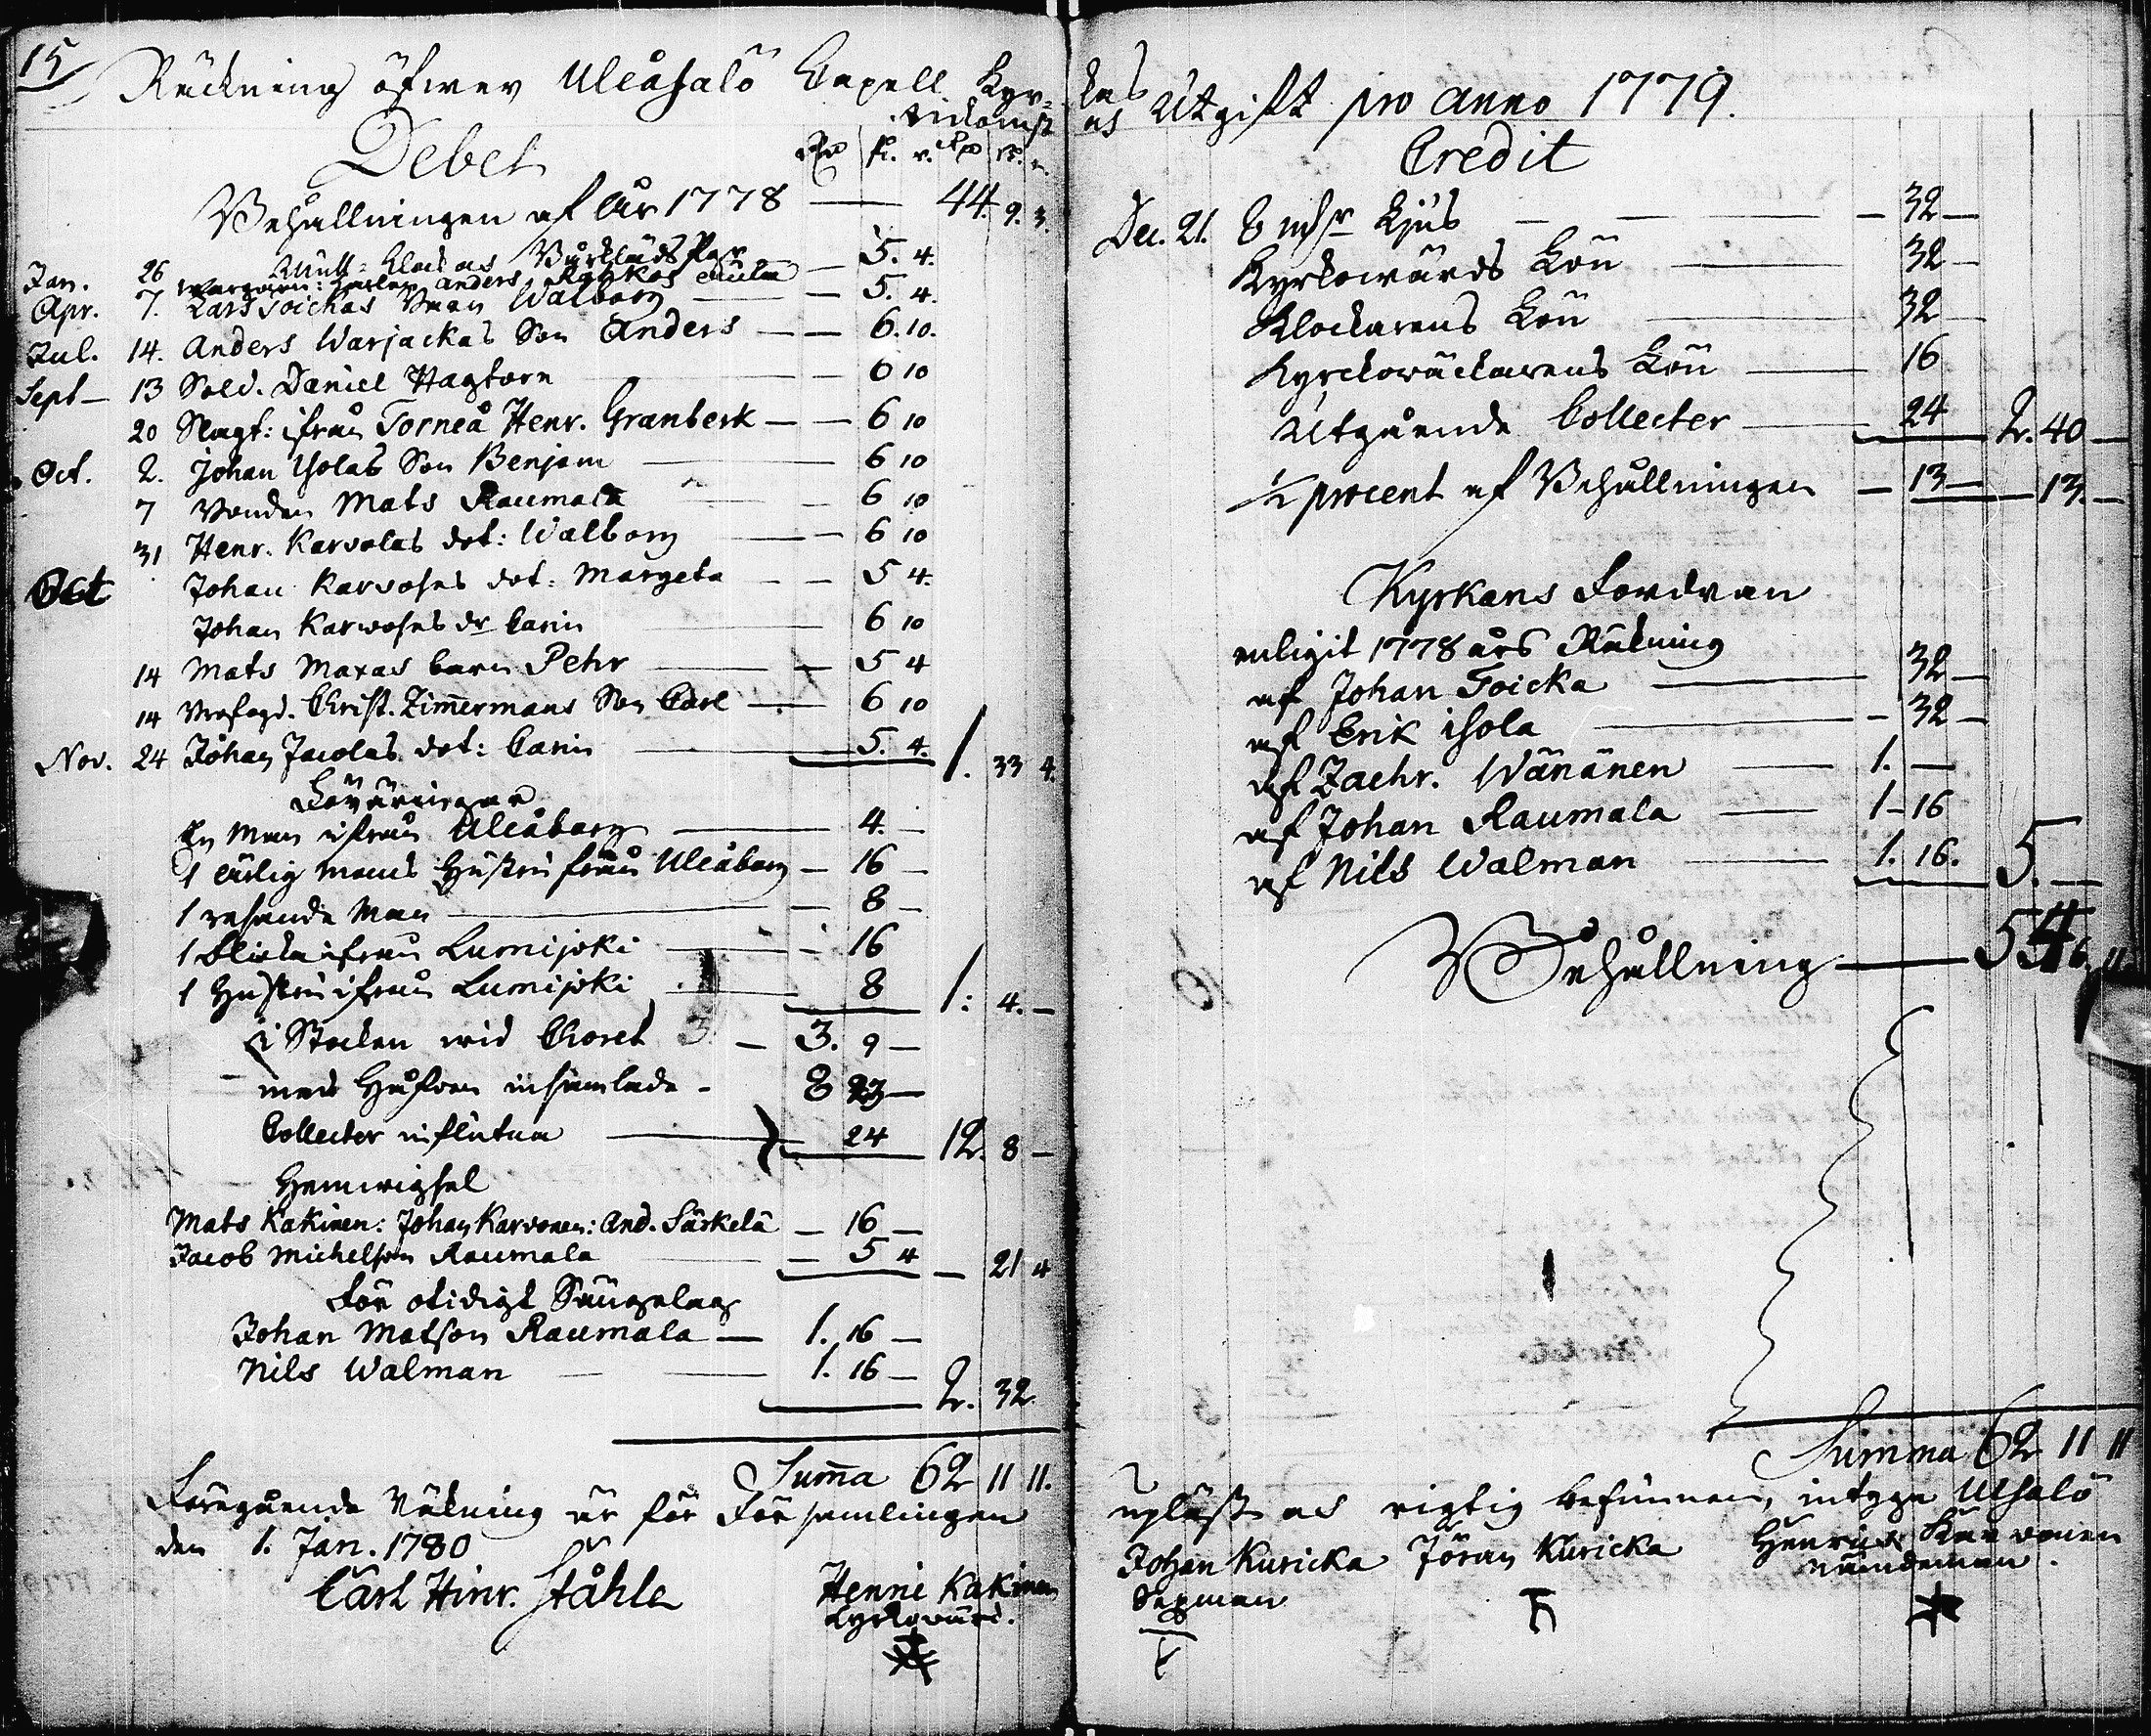 15
Räckning öfwer Uleåsalo Capell Kyr=
Inkomst
Debet
Rd ſk. r. Rd ſk. r.
Behållningen af år 1778 — 44. 9. 3.
Mull= Klock och Bårklädes Peng.
Jan. 26 Anders enka — 5. 4.
Apr. 7. Lars Toickas Walborg — 5. 4.
Jul. 14. Anders Warjackas Son Anders — 6. 10.
Sept — 13 Sold. Daniel Hagtorn — 6 10
20 Slagt: ifrån Torneå Henr. Granberk — 6 10
Oct. 2. Johan Isolas Son Benjam — 6 10
7 Bonden Mats Raumala — 6 10
31 Henr. Karvolas dot: Walborg — 6 10
Oct Johan Karvoses dot: Margeta — 5 4.
Johan Karwoses dr Carin — 6 10
14 Mats Maxas barn Pehr — 5 4
14 Christ. Zimermans Son Carl — 6 10
Nov. 24 Johan Jacolas dot: Carin — 5. 4. 1. 33 4.
Föräringar
En Man ifrån Uleåborg — 4. —
1 ärlig mans Hustru från Uleåborg — 16 —
1 resande Man — 8 —
1 Flicka ifrån Lumijoki — 16
1 Hustru ifrån Lumijoki — 8 1: 4. —
i Stocken wid Choret — 3. 9 —
med Håfwen insamlade — 8 23 —
Collecter influtna — 24 12. 8 —
Hemwigsel
Mats Kakinen: Johan Karvonen: And. Särkelä — 16 —
Jacob Michelson Raumala — 5 4 — 21 4
För otidigt Sängelag
Johan Matson Raumala — 1. 16 —
Nils Walman — 1. 16 — 2. 32
Suma 62 11 11.
Föregående Räkning är för Församlingen
den 1. Jan. 1780
Carl Hinr. Ståhle
Henric Kakinen
Kyrkowärd.
kas
os Utgift pro anno 1779.
Credit
Dec. 21. Ljus — 32 —
Kyrkowärds Lön — 32 —
Klockarens Lön — 32
Kyrckowäckarens Lön — 16
Utgående Collecter — 24 2. 40 —
½ procent af Behållningen — 13 — 13. —
Kyrkans Fordran
enligit 1778 års Räkning
af Johan Toicka — 32 —
af Erik isola — 32 —
af Zachr. Wänänen — 1. —
af Johan Raumala — 1 — 16
af Nils Walman — 1. 16. 5. —
Behållning — 54 6. 11
Summa 62 11 11
upläst och rigtig befunnen, intyga Ulsalo
Johan Kuricka Jöran Kuricka Henrich Karvonen
Sexman nämdeman.